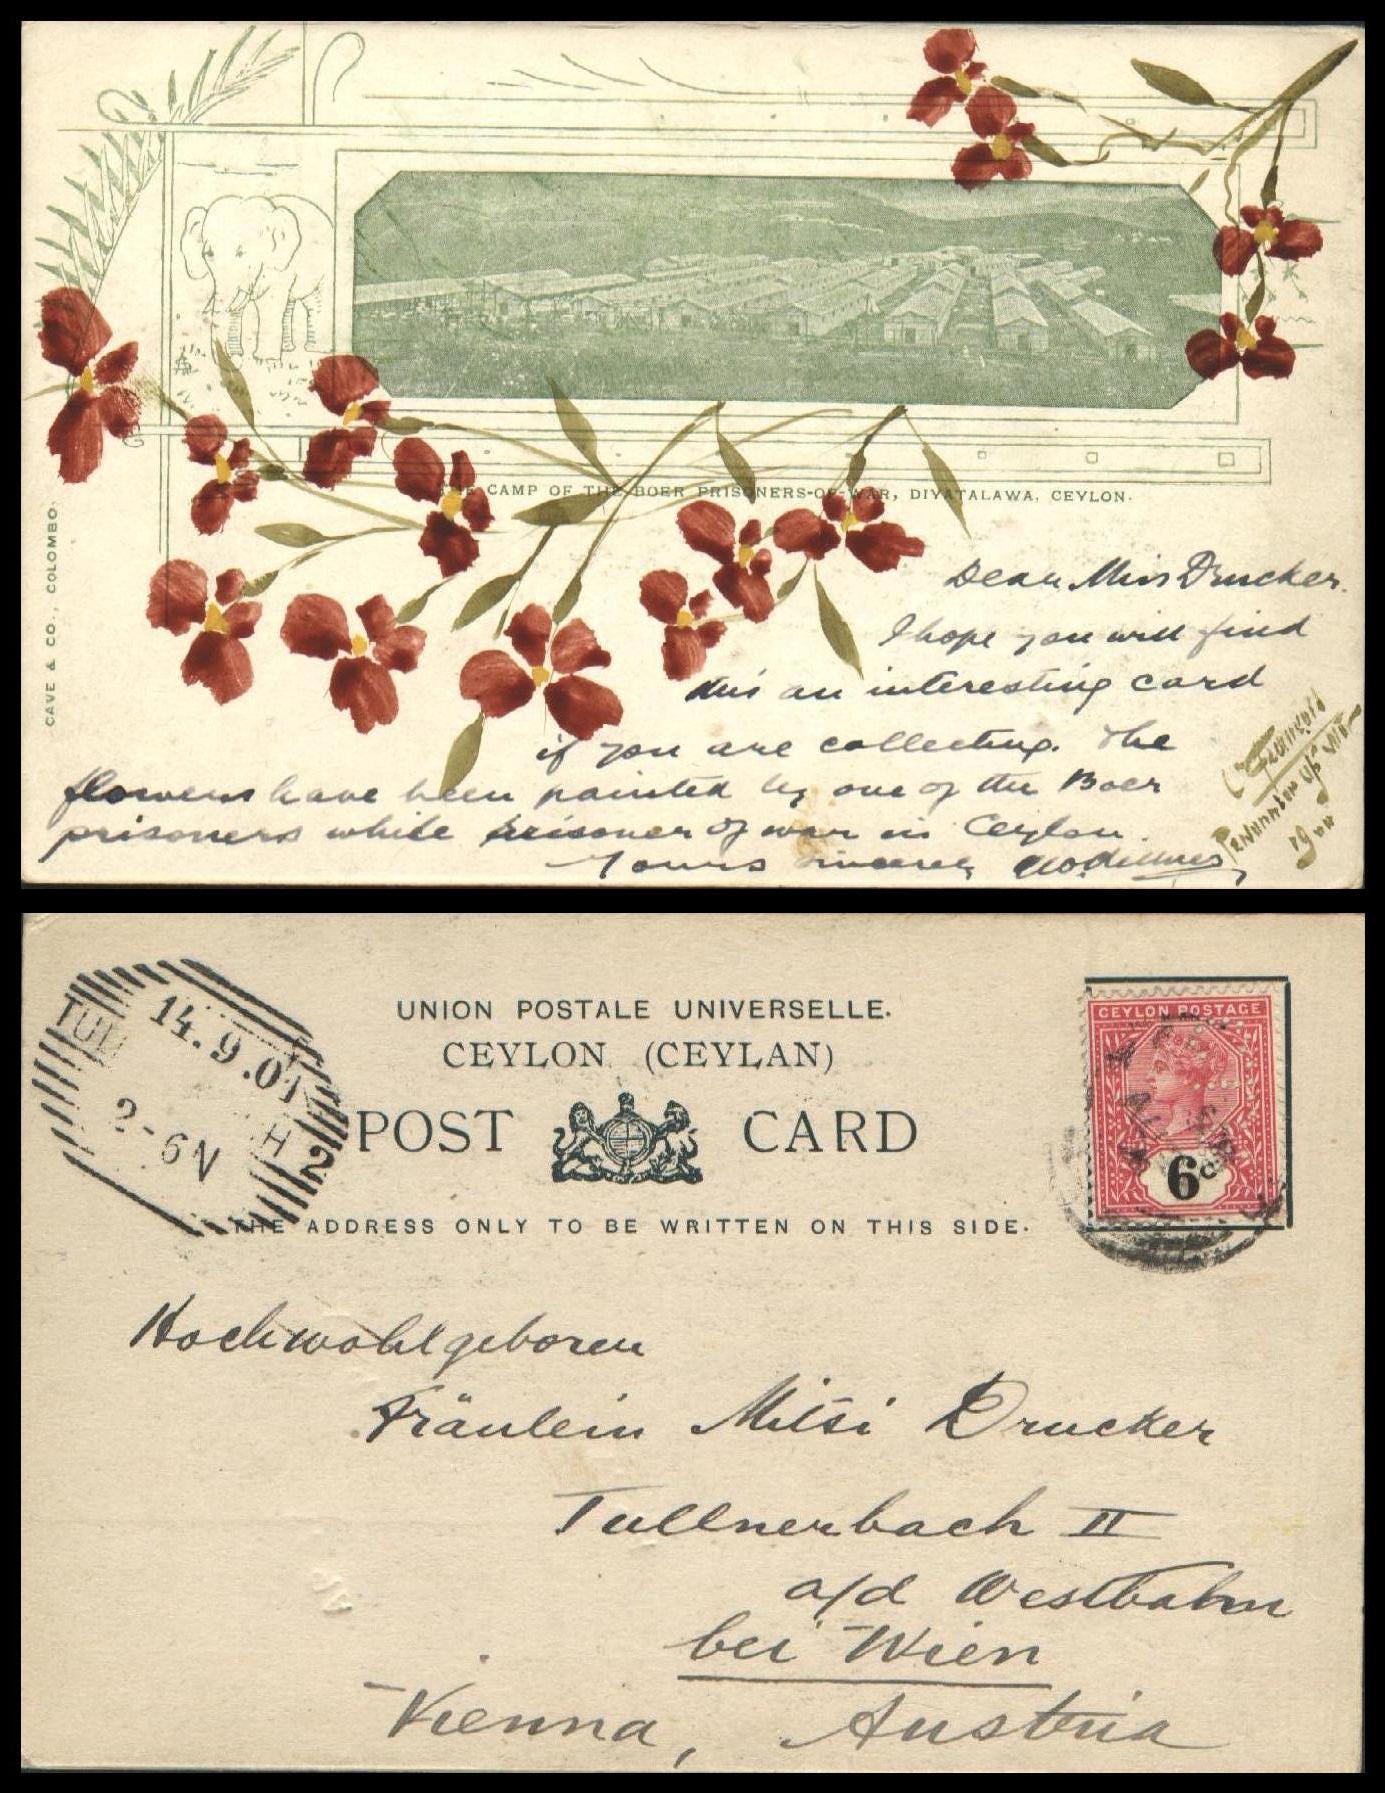 THE CAMP OF THE BOER PRISONERS-OF-WAR, DIYATALAWA, CEYLON.
CAVE & CO., COLOMBO.
Dear Miss Drucker.
I hope you will find
this an interesting card
if you are collecting. The
flowers have been painted by one of the Boer
prisoners while prisoner of war in Ceylon.
Yours sincerely
Prisoner of War
1900
UNION POSTALE UNIVERSELLE.
CEYLON (CEYLAN)
POST CARD
THE ADDRESS ONLY TO BE WRITTEN ON THIS SIDE.
14.9.01
2-6N
CEYLON POSTAGE
6c
Hochwohlgeboren
Fräulein Mitsi Drucker
Tullnerbach II
a/d Westbahn
bei Wien
Vienna, Austria